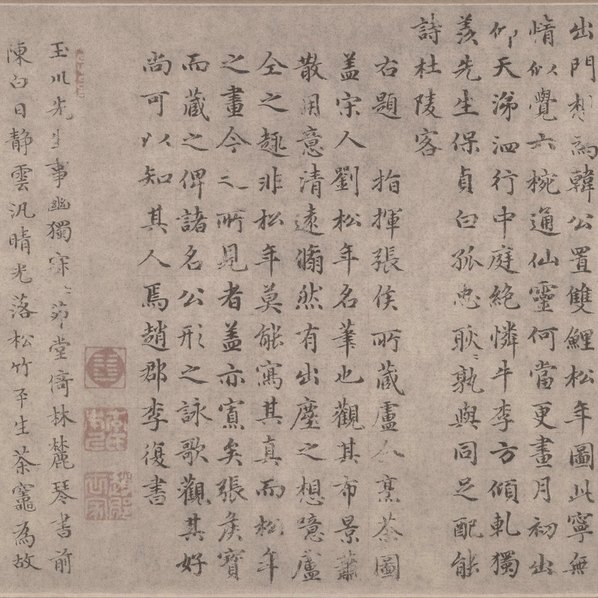 出門想為韓公置雙鯉松年圖此寧無
情似覺六椀通仙靈何當更畫月初出
仰天涕泗行中庭絶憐牛李方傾軋獨
羨先生保貞白孤忠耿〻孰與同足配能
詩杜陵客
右題 指揮張侯所藏盧仝烹茶圖
盖宋人劉松年名筆也觀其布景蕭
散用意清遠翛然有出塵之想噫盧
仝之趣非松年莫能寫其真而松年
之畫今之所見者盖亦寡矣張侯寶
而藏之俾諸名公形之詠歌觀其好
尚可以知其人焉趙郡李復書
玉川先生事幽獨寂〻茆堂倚林麓琴書前
陳白日静雲汎晴光落松竹平生茶竈為故